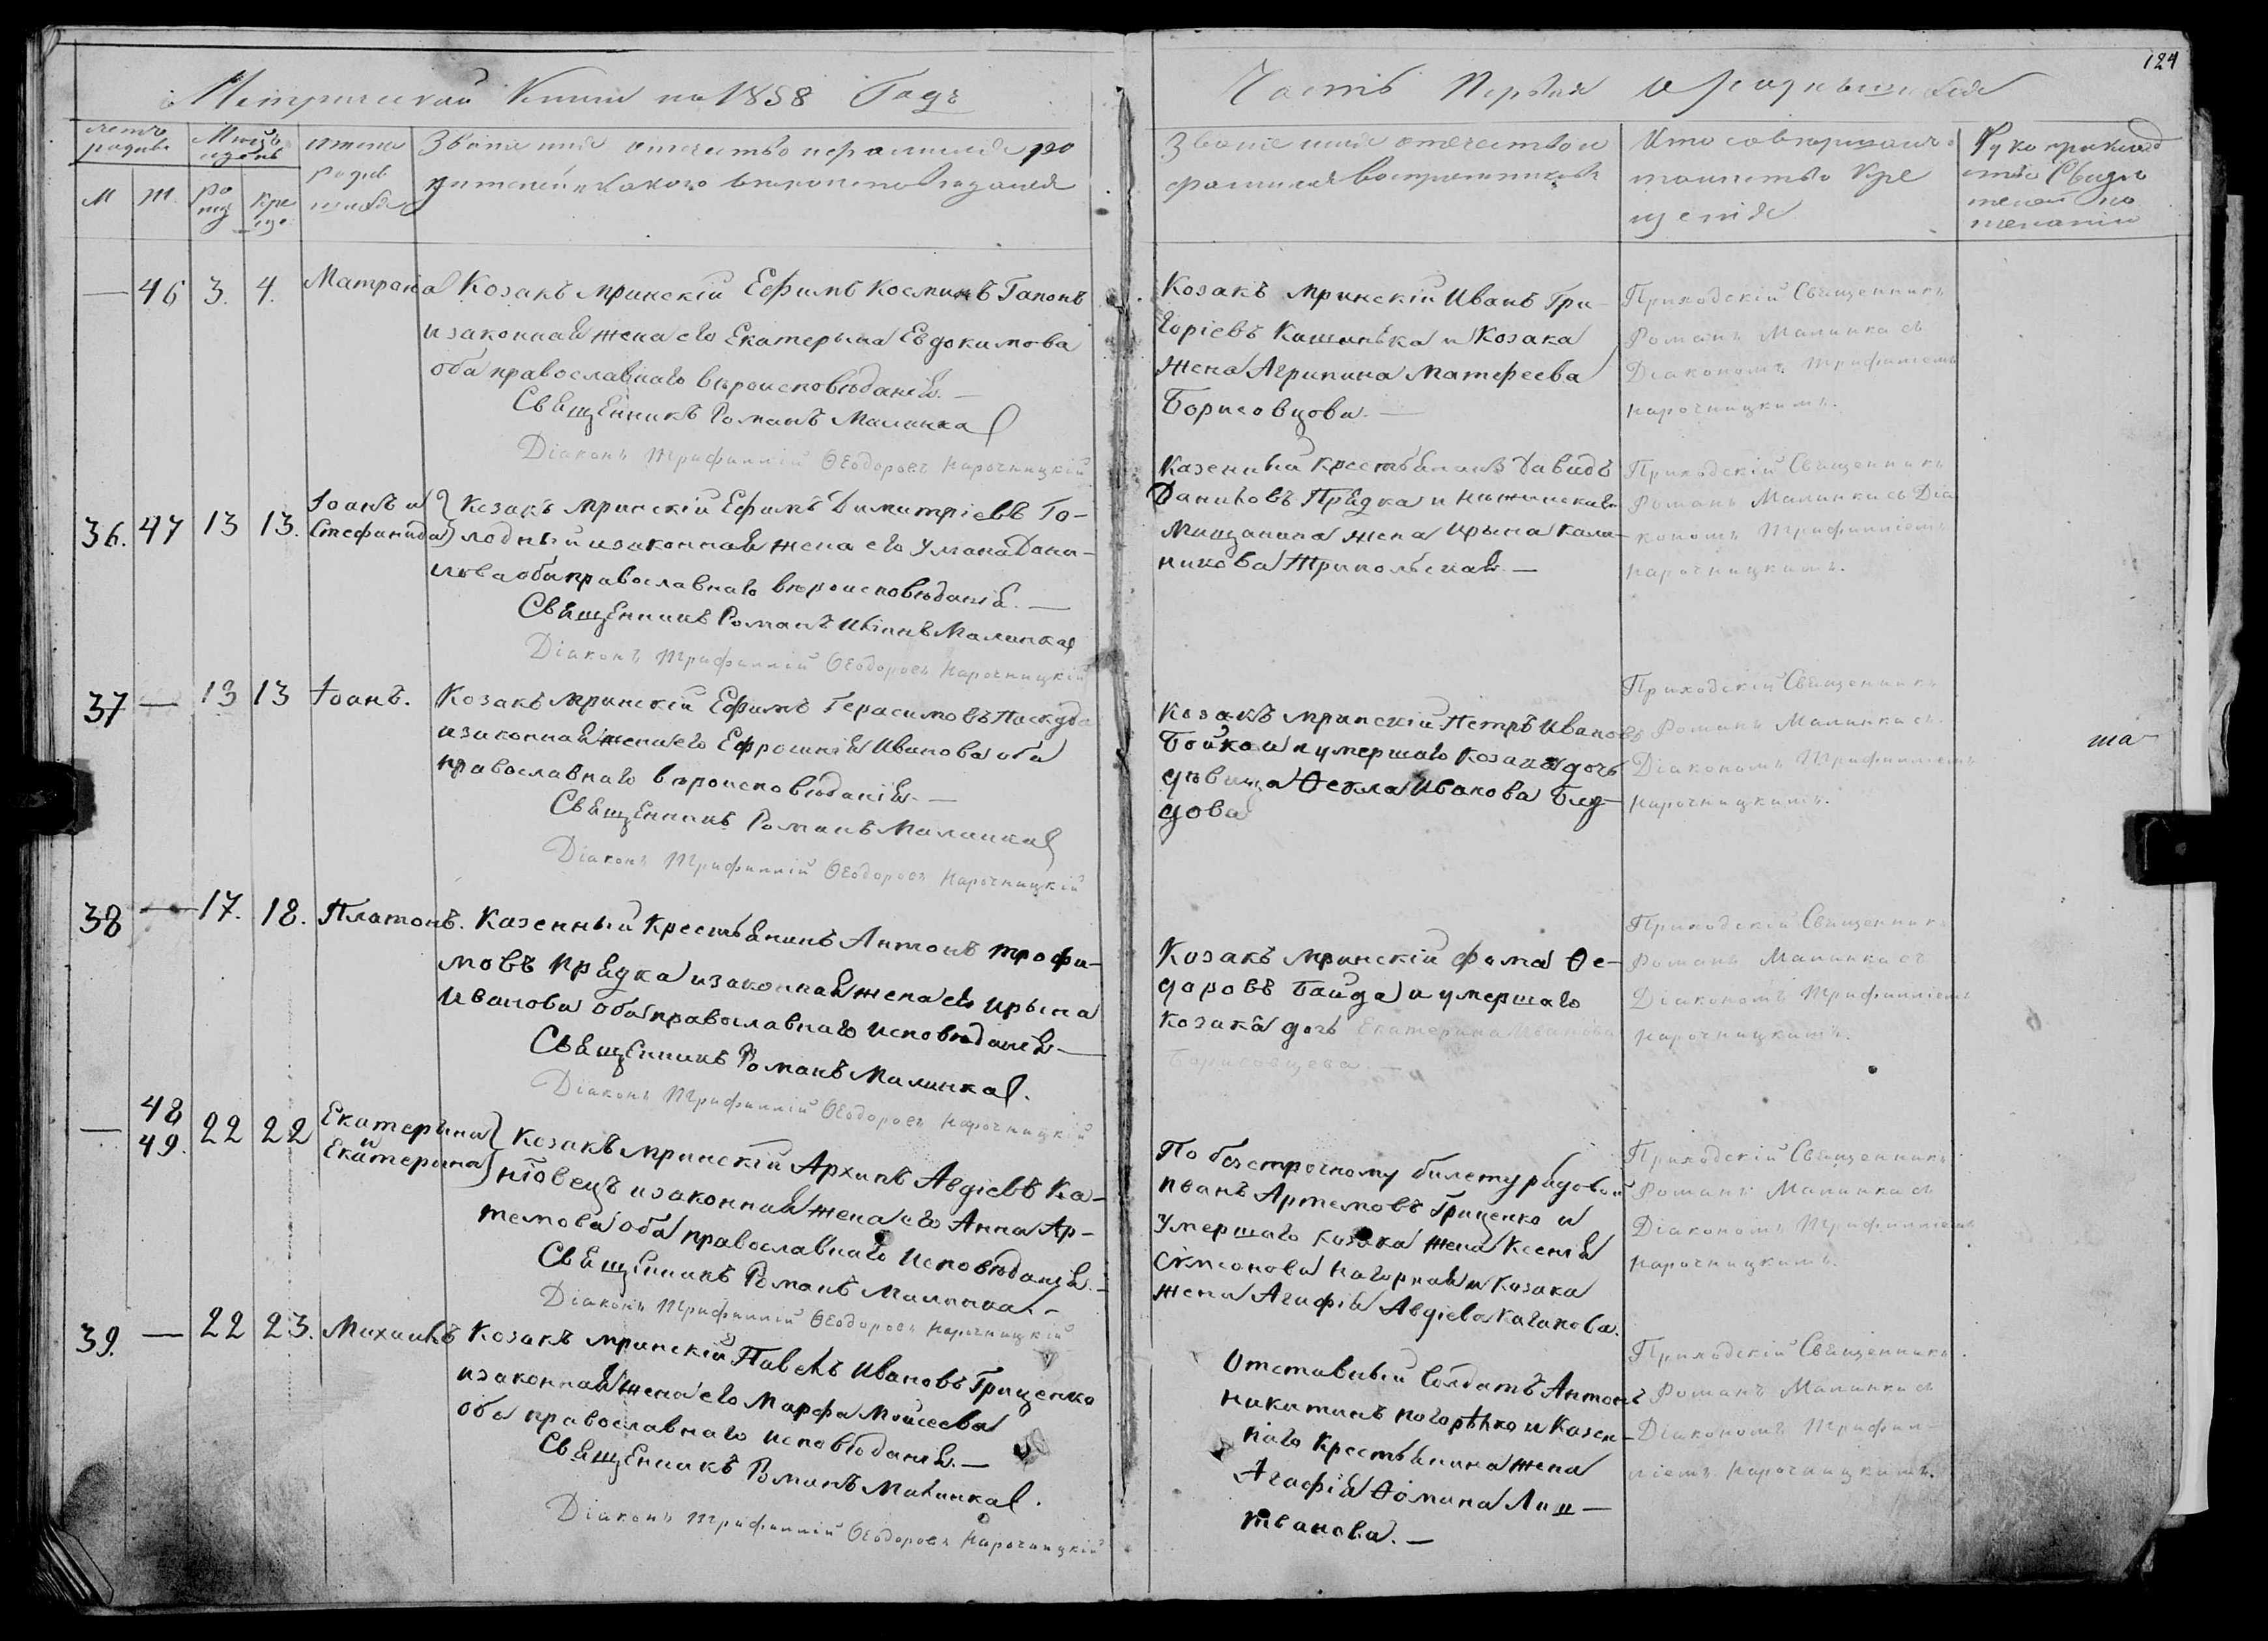 Метрической Книги на 1858 Годъ
Часть Первая о родившихся
124
М
Ж.
Званіе имя отчество и фамилія ро
дителей и какого вѣроисповѣданія
Званіе имя отчество и
фамилія воспріемниковъ
Кто совершалъ
таинство Кре
щенія
— 46 3. 4. Матрона
Козакъ мринскій Ефимъ Косминъ Гапонъ
и законная жена его Екатерына Евдокимова
оба православнаго вѣроисповѣданія. —
Священникъ Романъ Малинка
Діаконъ Трифиллій Ѳеодоровъ Нарочницкій
Козакъ мринскій Иванъ Гри-
горіевъ Кашинька и Козака
жена Агрипина Матфеева
Борисовцова. —
Приходскій Священникъ
Романъ Малинка съ
Діакономъ Трифилліемъ
Нарочницкимъ.
36. 47 13 13. Іоанъ и
Стефанида
Козакъ мринскій Ефимъ Димитріевъ Го-
лодный и законная жена его Уліана Дани-
лова оба православнаго вѣроисповѣданія. —
Священникъ Романъ Малинка
Діаконъ Трифиллій Ѳеодоровъ Нарочницкій
Казенный крестьянинъ Давидъ
Даниловъ Прядка и Нѣжинскаго
Мищанина жена Ирына Кали-
никова Трипольская. —
Приходскій Священникъ
Романъ Малинка съ Діа
кономъ Трифилліемъ
Нарочницкимъ.
37 — 13 13 Іоанъ.
Козакъ мринскій Ефимъ Герасимовъ Паскуда
и законная жена его Ефросинія Иванова оба
православнаго вѣроисповѣданія. —
Священникъ Романъ Малинка
Діаконъ Трифиллій Ѳеодоровъ Нарочницкій
Козакъ мринскій Петръ Ивановъ
Бойко и умершаго козака дочь
дѣвица Ѳекла Иванова Бед-
дова
Приходскій Священникъ
Романъ Малинка съ
Діакономъ Трифилліемъ
Нарочницкимъ.
38 — 17. 18. Платонъ.
Казенный Крестьянинъ Антонъ Трофи-
мовъ Прядка и законная жена его Ирына
Иванова оба православнаго исповѣданія —
Священникъ Романъ Малинка.
Діаконъ Трифиллій Ѳеодоровъ Нарочницкій
Козакъ мринскій Фома Ѳе-
доровъ Байда и умершаго
козака дочь Екатерина Иванова
Борисовцева
Приходскій Священникъ
Романъ Малинка съ
Діакономъ Трифилліемъ
Нарочницкимъ.
— 48
49. 22 22 Екатерына
и
Екатерына
Козакъ мринскій Архипъ Авдіевъ Ка-
нѣовецъ и законная жена его Анна Ар-
темова оба православнаго исповѣданія. —
Священникъ Романъ Малинка. —
Діаконъ Трифиллій Ѳеодоровъ Нарочницкій
По безсрочному билету рядовой
Иванъ Артемовъ Гриценко и
умершаго козака жена Ксенія
Симеонова Нагорная и Козака
жена Агафія Авдіева Каганова.
Приходскій Священникъ
Романъ Малинка съ
Діакономъ Трифилліемъ
Нарочницкимъ.
39. — 22 23. Михаилъ
Козакъ мринскій Павелъ Ивановъ Гриценко
и законная жена его Марфа Моисеева
оба православнаго исповѣданія. —
Священникъ Романъ Малинка.
Діаконъ Трифиллій Ѳеодоровъ Нарочницкій
Отставный Солдатъ Антонъ
Никитинъ Погорѣлко и Казен-
наго Крестьянина жена
Агафія Ѳомина Лит-
твинова. —
Приходскій Священникъ
Романъ Малинка съ
Діакономъ Трифил-
ліемъ Нарочницкимъ.